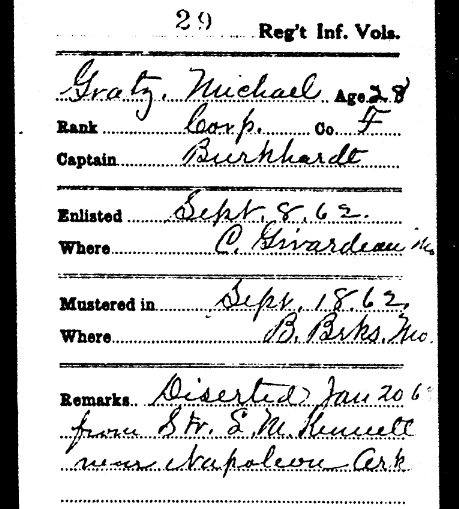 29 Reg't Inf. Vols.
Gratz, Michael Age 28
Rank Corp. Co F
Captain Burkhardt
Enlisted Sept. 8. 62.
Where C. Girardeau Mo
Mustered in Sept. 18. 62.
Where B. Brks. Mo.
Remarks Diserted Jan 20 6
from Str. E. M. Kennett
near Napoleon Ark